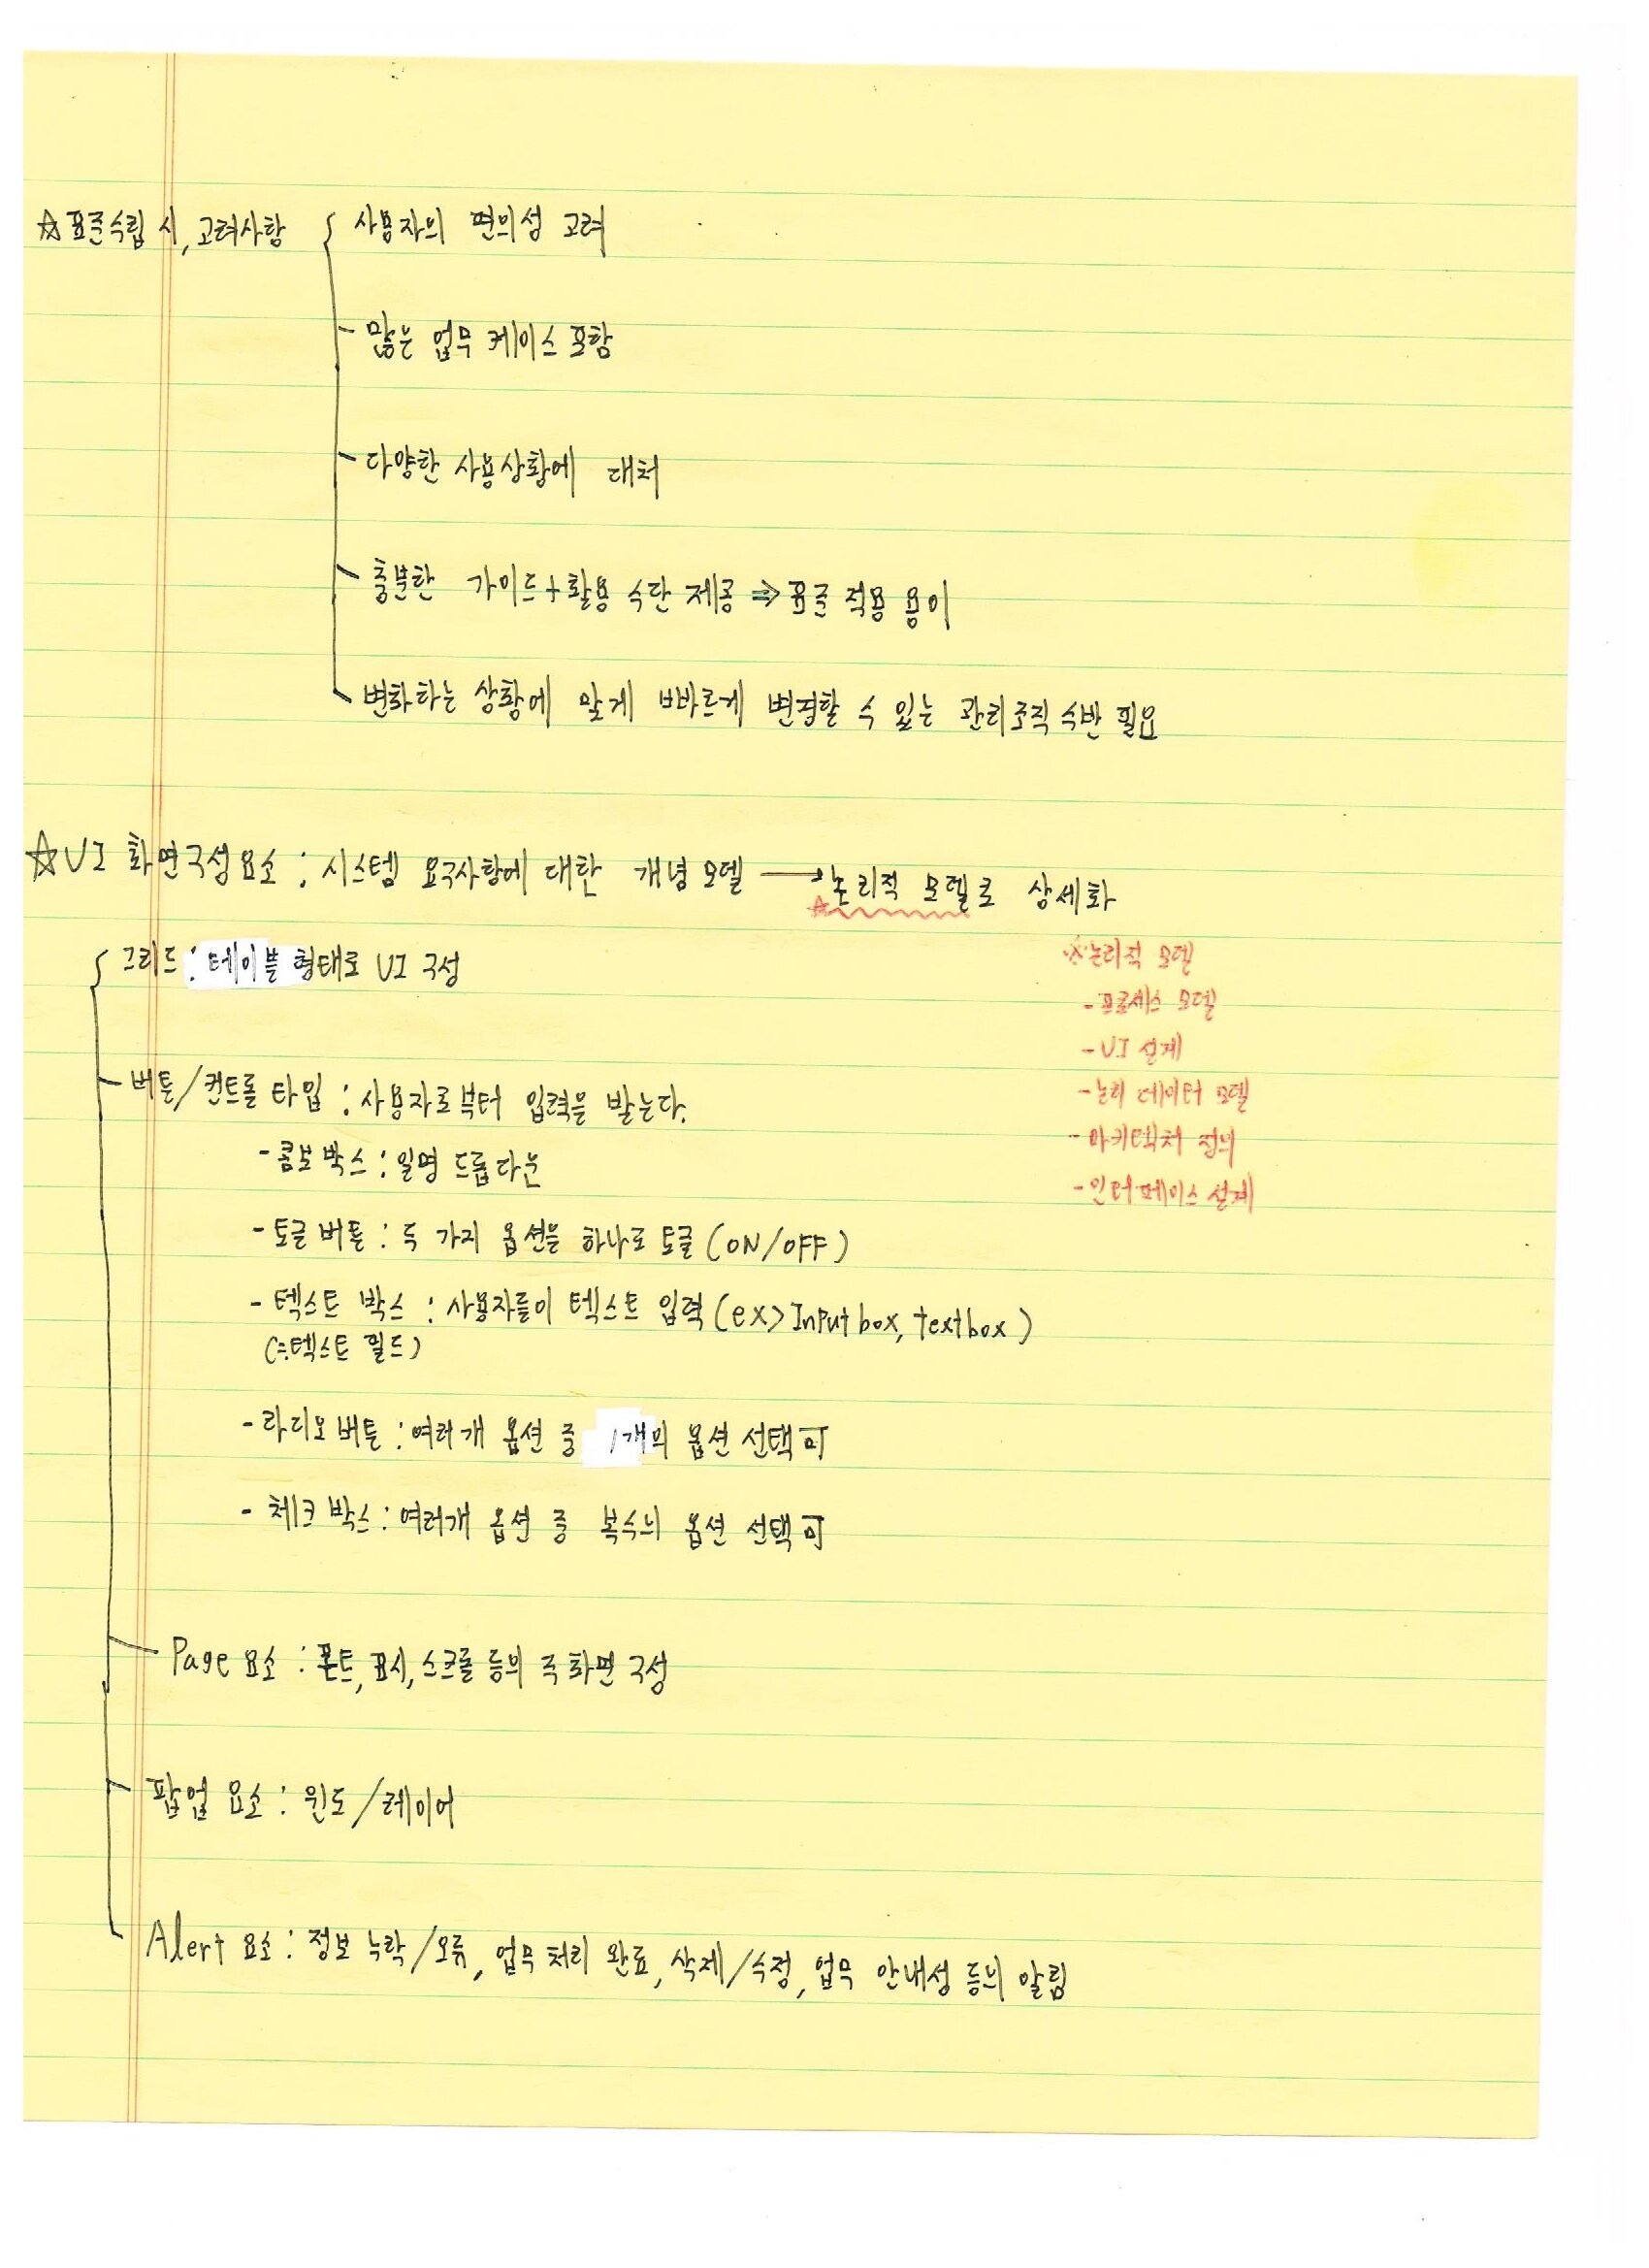 ☆표준수립 시, 고려사항
사용자의 편의성 고려
- 많은 업무 케이스 포함
- 다양한 사용상황에 대처
- 충분한 가이드+활용 수단 제공 ⇒ 표준 적용 용이
변화하는 상황에 맞게 빠르게 변경할 수 있는 관리조직 수반 필요
☆UI 화면구성요소 : 시스템 요구사항에 대한 개념 모델 → 논리적 모델로 상세화
☆
그리드 : 테이블 형태로 UI 구성
※논리적 모델
- 프로세스 모델
- UI 설계
- 논리 데이터 모델
- 아키텍처 정의
- 인터페이스 설계
- 버튼/컨트롤 타입 : 사용자로부터 입력을 받는다.
- 콤보 박스 : 일명 드롭다운
- 토글 버튼 : 두 가지 옵션을 하나로 토글 (ON/OFF)
- 텍스트 박스 : 사용자들이 텍스트 입력 (ex> Input box, textbox)
(=텍스트 필드)
- 라디오 버튼 : 여러개 옵션 중 1개의 옵션 선택 可
- 체크 박스 : 여러개 옵션 중 복수의 옵션 선택 可
Page 요소 : 폰트, 표시, 스크롤 등의 주 화면 구성
- 팝업 요소 : 윈도/레이어
Alert 요소 : 정보 누락/오류, 업무 처리 완료, 삭제/수정, 업무 안내성 등의 알림